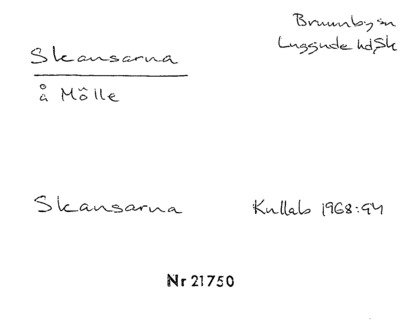 Brunnby sn
Luggude hd, Sk
Skansarna
å Mölle
Skansarna Kullab 1968:94
Nr 21750